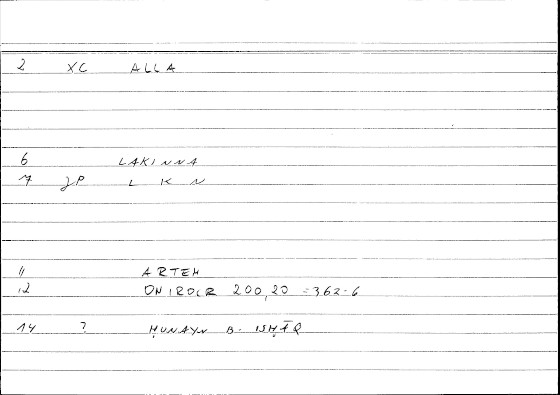 2 XC ALLA
6 LAKINNA
7 JP L K N
11 ARTEM
12 ONIROCR 200,20 = 362-6
14 ? ḤUNAYN B. ISḤĀQ